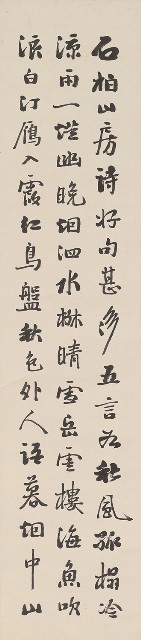 石柏山房詩好句甚多五言若秋風孤榻冷
涼雨一燈幽晚烟泗水林晴雪岳雲樓海魚吹
浪白汀雁入霞紅鳥盤秋色外人語暮烟中山